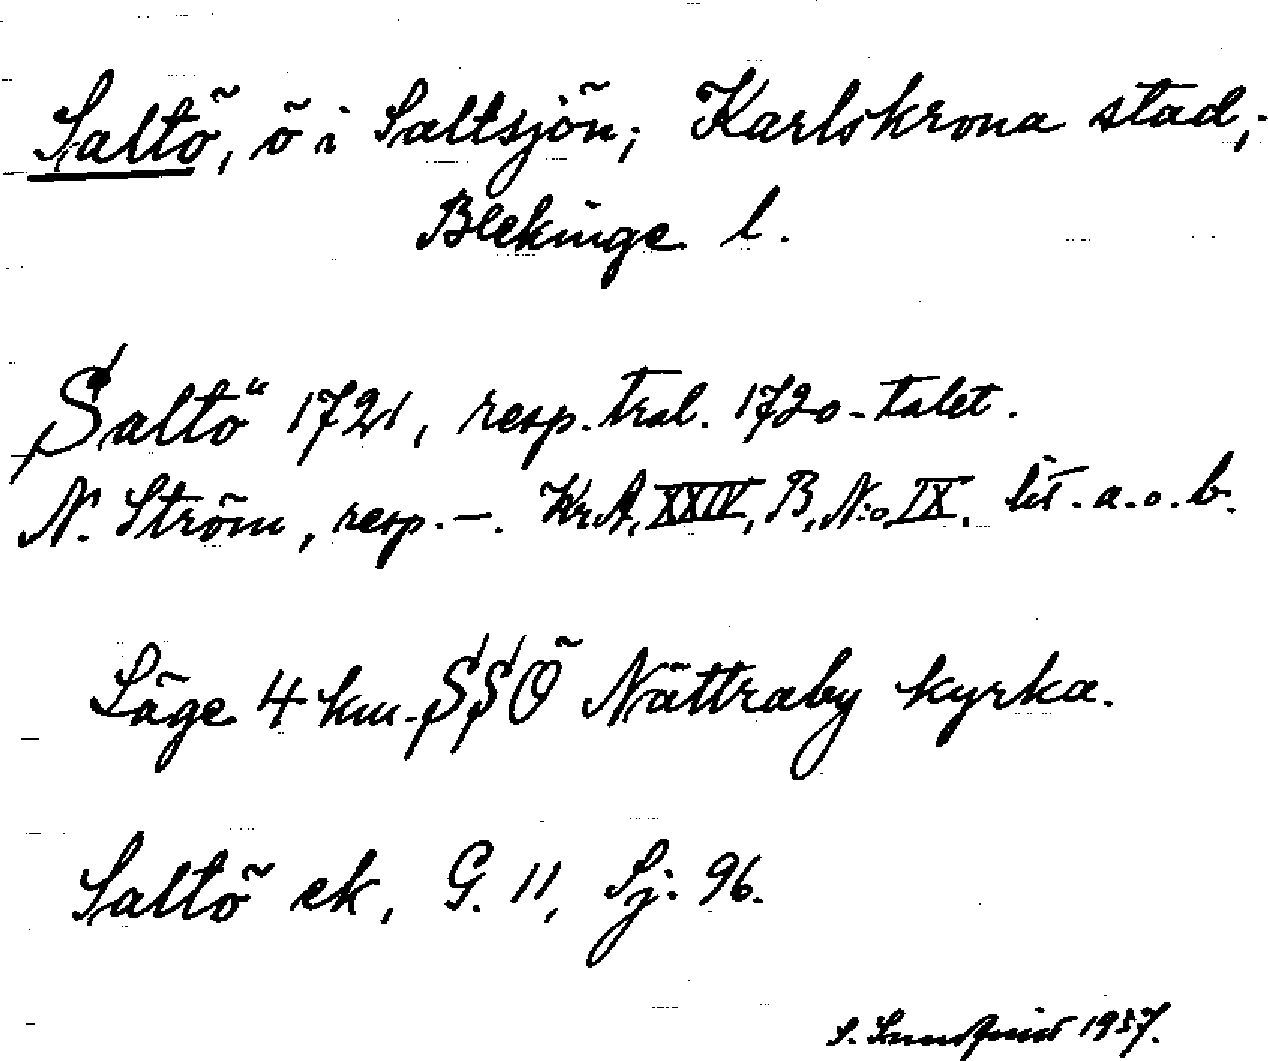 Saltö, ö i Saltsjön; Karlskrona stad,
Blekinge l.
Saltö 1721, resp. tral. 1720-talet.
N. Ström, resp. –. Kr.A, XXIV, B, N:o IX, lit. a. o. b.
Läge 4 km. SSÖ Nättraby kyrka.
Saltö ek, G. 11, Sj. 96.
S. 1937.